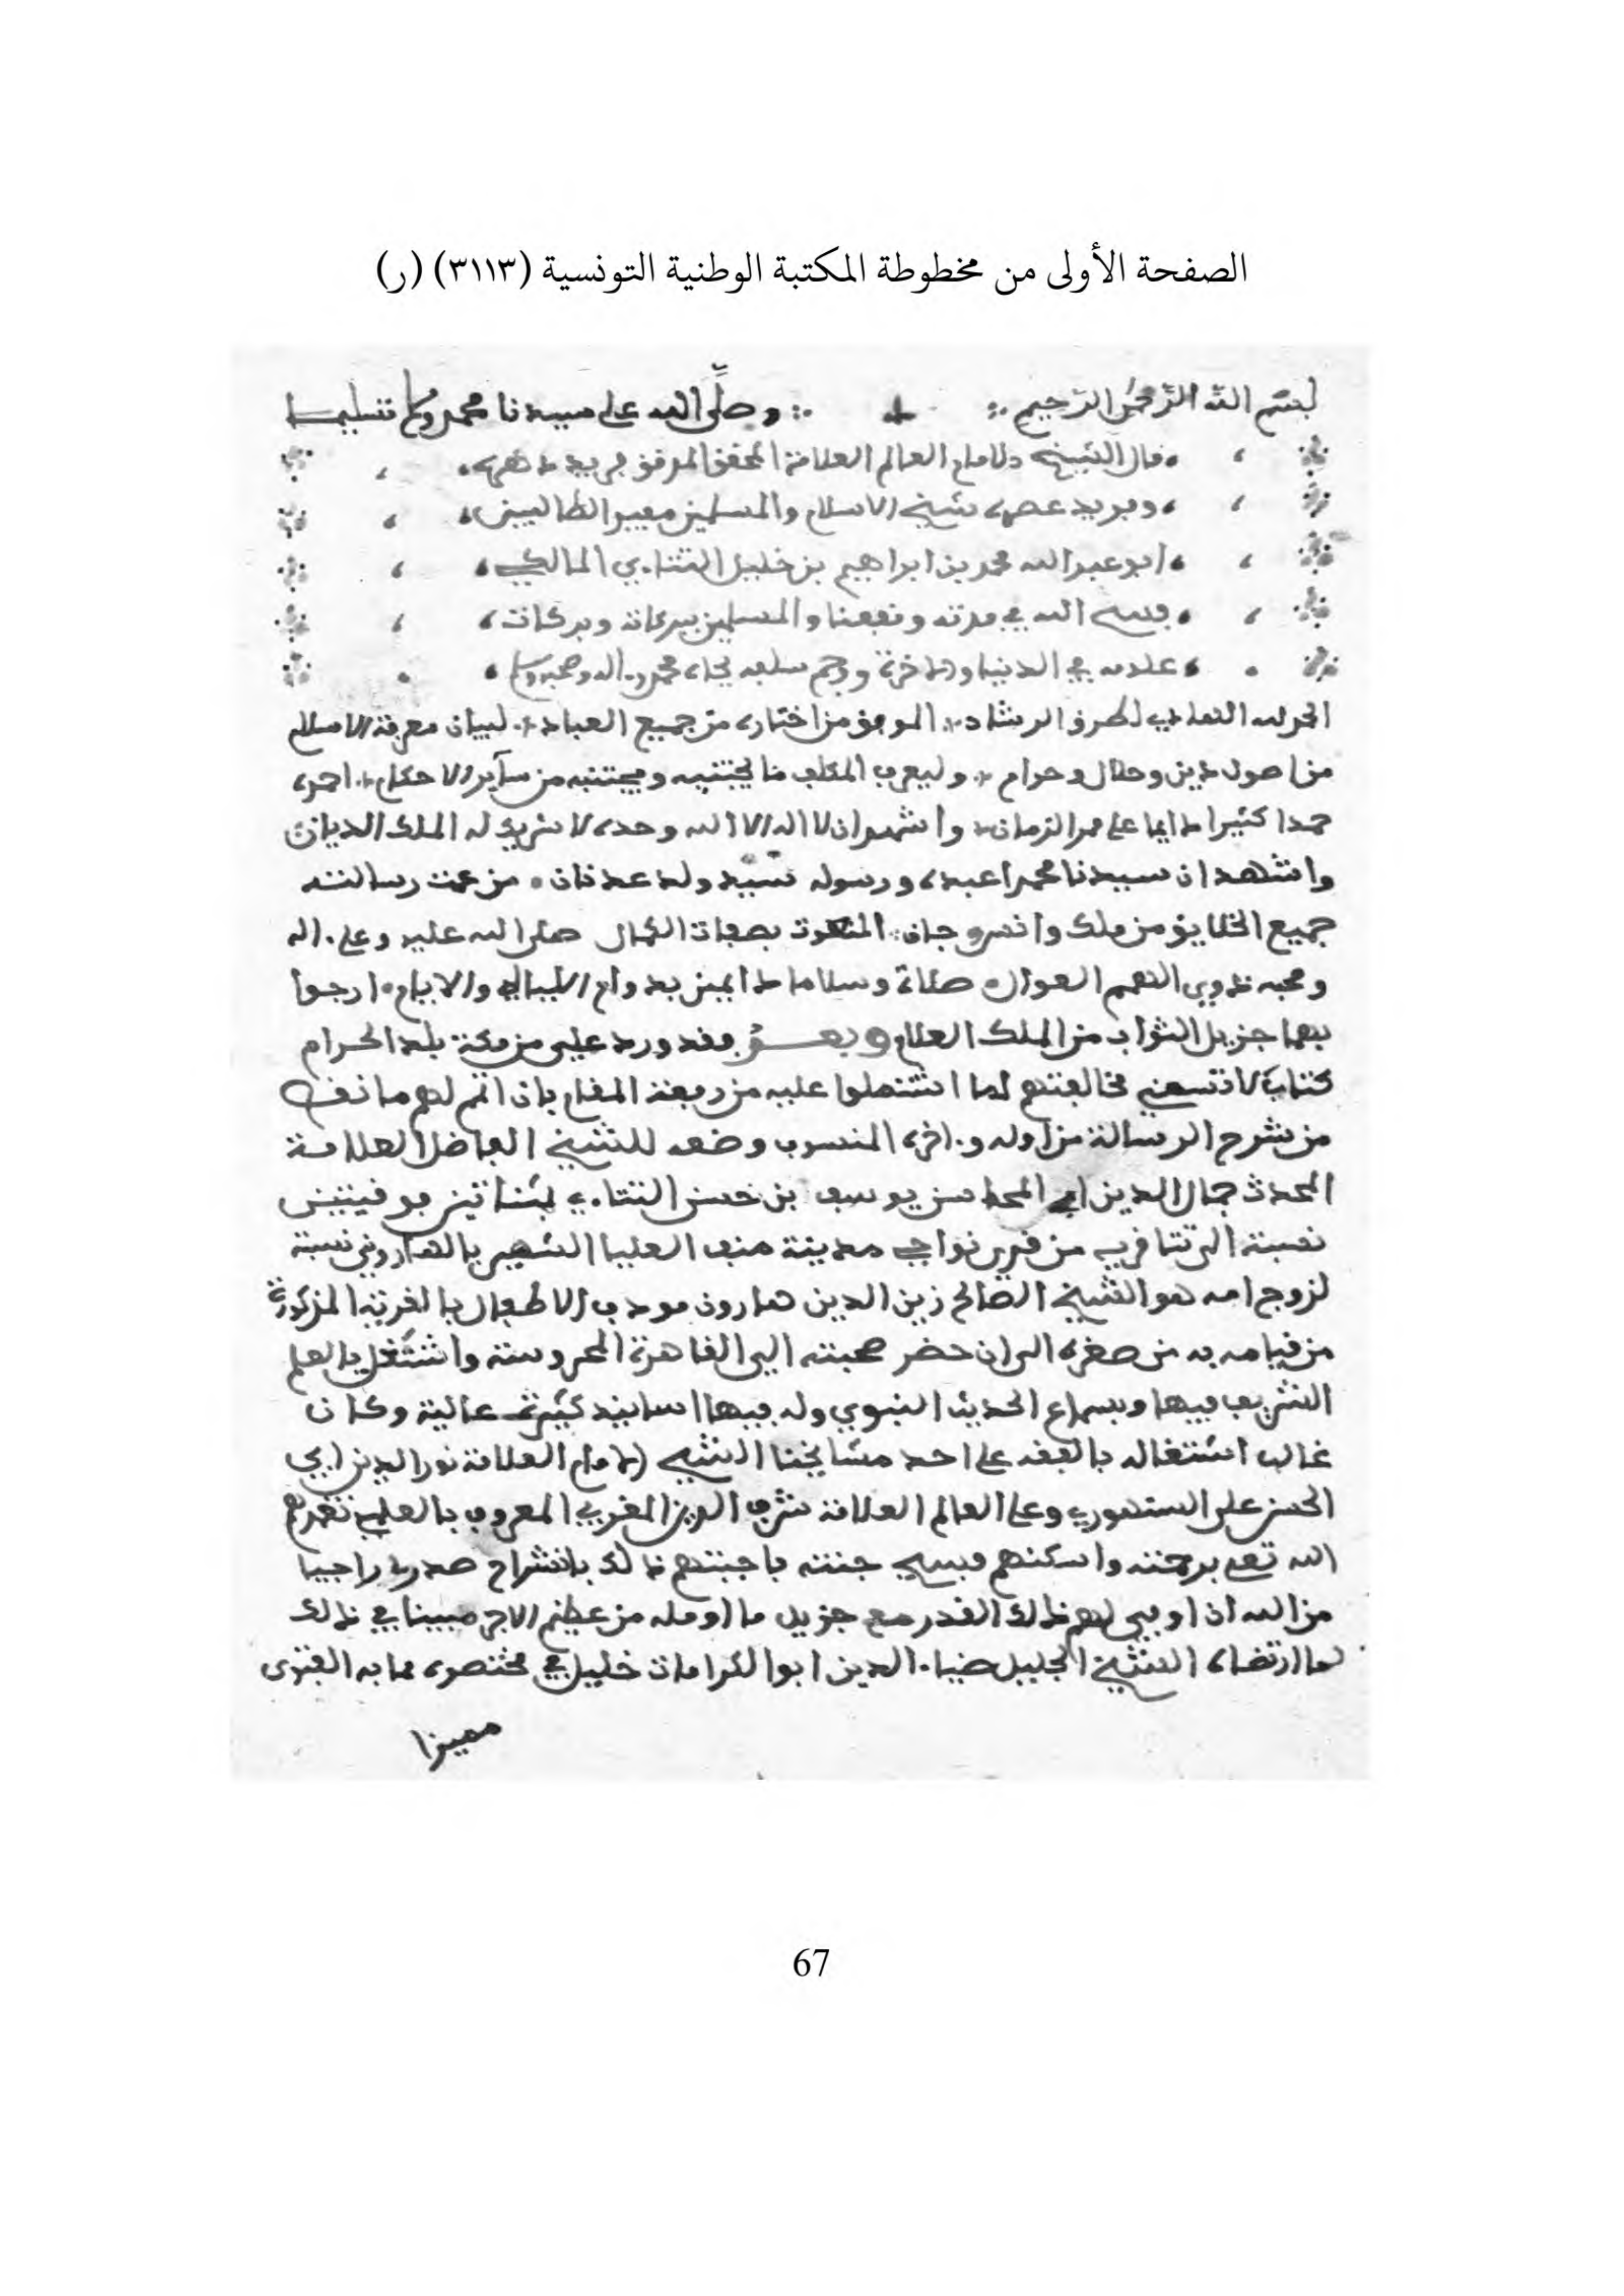 الصفحة الأولى من مخطوطة المكتبة الوطنية التونسية (٣١١٣) (ر)
بسم الله الرحمن الرحيم وصلى الله على سيدنا محمد وسلم تسليما
قال الشيخ الامام العالم العلامة المحقق المدقق فريد دهره
ووحيد عصره شيخ الاسلام والمسلمين مفيد الطالبين
ابو عبد الله محمد بن ابراهيم بن خليل التتاءي المالكي
فسح الله في مدته ونفعنا والمسلمين ببركاته
في الدنيا والاخرة ورحم سلفه بجاه محمد واله وصحبه وسلم
الحمد لله الهادي لطرق الرشاد الموفق من اختاره من جميع العباد لبيان معرفة الاسلام
من اصول دين وحلال وحرام وليعرف المكلف ما يجتنبه من ساير الاحكام احمده
حمدا كثيرا دايما على ممر الزمان واشهد ان لا اله الا الله وحده لا شريك له الملك الديان
واشهد ان سيدنا محمدا عبده ورسوله سيد ولد عدنان من عمت رسالته
جميع الخلايق من ملك وانس وجان المنعوت بصفات الكمال صلى الله عليه وعلى اله
وصحبه ذوي الهمم العوال صلاة وسلاما دايمين بدوام الليالي والايام ارجوا
بهما جزيل الثواب من الملك العلام وبعد فقد ورد علي من مكة بلد الحرام
كتاب لا تسعني مخالفتهم لما اشتملوا عليه من رفعة المقام بان اتم لهم ما نقص
من شرح الرسالة من اوله واخره المنسوب وضعه للشيخ الفاضل العلامة
المحدث جمال الدين ابي المحاسن يوسف بن حسن التتاءي بمثناتين فوقيتين
نسبة الى تتا قرية من قرى نواحي مدينة منف العليا الشهير بالهاروني نسبة
لزوج امه هو الشيخ الصالح زين الدين هارون مودب الاطفال بالقرية المذكورة
من قيامه به من صغره الى ان حضر صحبته الى القاهرة المحروسة واشتغل بالعلم
الشريف فيها وبسماع الحديث النبوي وله فيها اسانيد كثيرة عالية وكان
غالب اشتغاله بالفقه على احد مشايخنا الشيخ الامام العلامة نور الدين ابي
الحسن علي السنهوري وعلى العالم العلامة شرف الدين المغربي المعروف بالعلمي تغمدهم
الله تعلى برحمته واسكنهم فسيح جنته فاجبتهم لذلك بانشراح صدر راجيا
من الله ان اوفي لهم ذلك القدر مع جزيل ما اومله من عظيم الاجر مبينا في ذلك
لما ارتضاه الشيخ الجليل ضياء الدين ابو الكرامات خليل في مختصره مما به الفتوى
مميزا
67